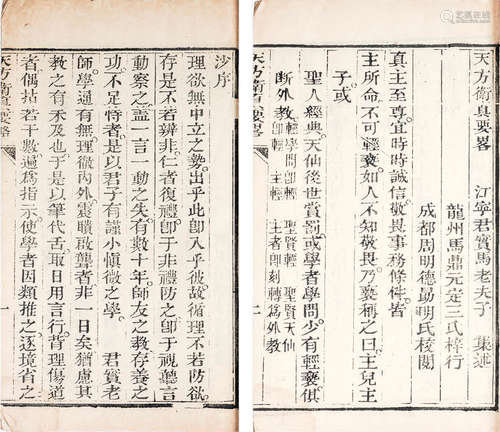 天方衛真要畧 江寧君實馬老夫子 集述
龍州馬鼎元定三氏梓行
成都周明德勗明氏校閱
真主至尊宜時時誠信敬畏事務條件皆
主所命不可輕褻如人不知敬畏乃褻稱之曰主兒主
子或
聖人經典天仙後世賞罰或學者學問少有輕褻俱
斷外教 輕學問卽輕 聖賢輕 聖賢天仙
主輕 主者卽刻轉爲外教
天方衛真要畧
一
沙序
理欲無中立之勢出乎此卽入乎彼故循理不若防欲
存是不若辨非仁者復禮卽于非禮防之卽于視聽言
動察之蓋一言一動之失有數十年師友之教存養之
功不足恃者是以君子有謹小愼微之學 君實老
師學通有無理徹內外震聵啟聾者非一日矣猶慮其
教之有未及也于是以筆代舌取日用言行背理傷道
者偶拈若干數過爲指示使學者因類推之逐境省之
天方衛真要畧